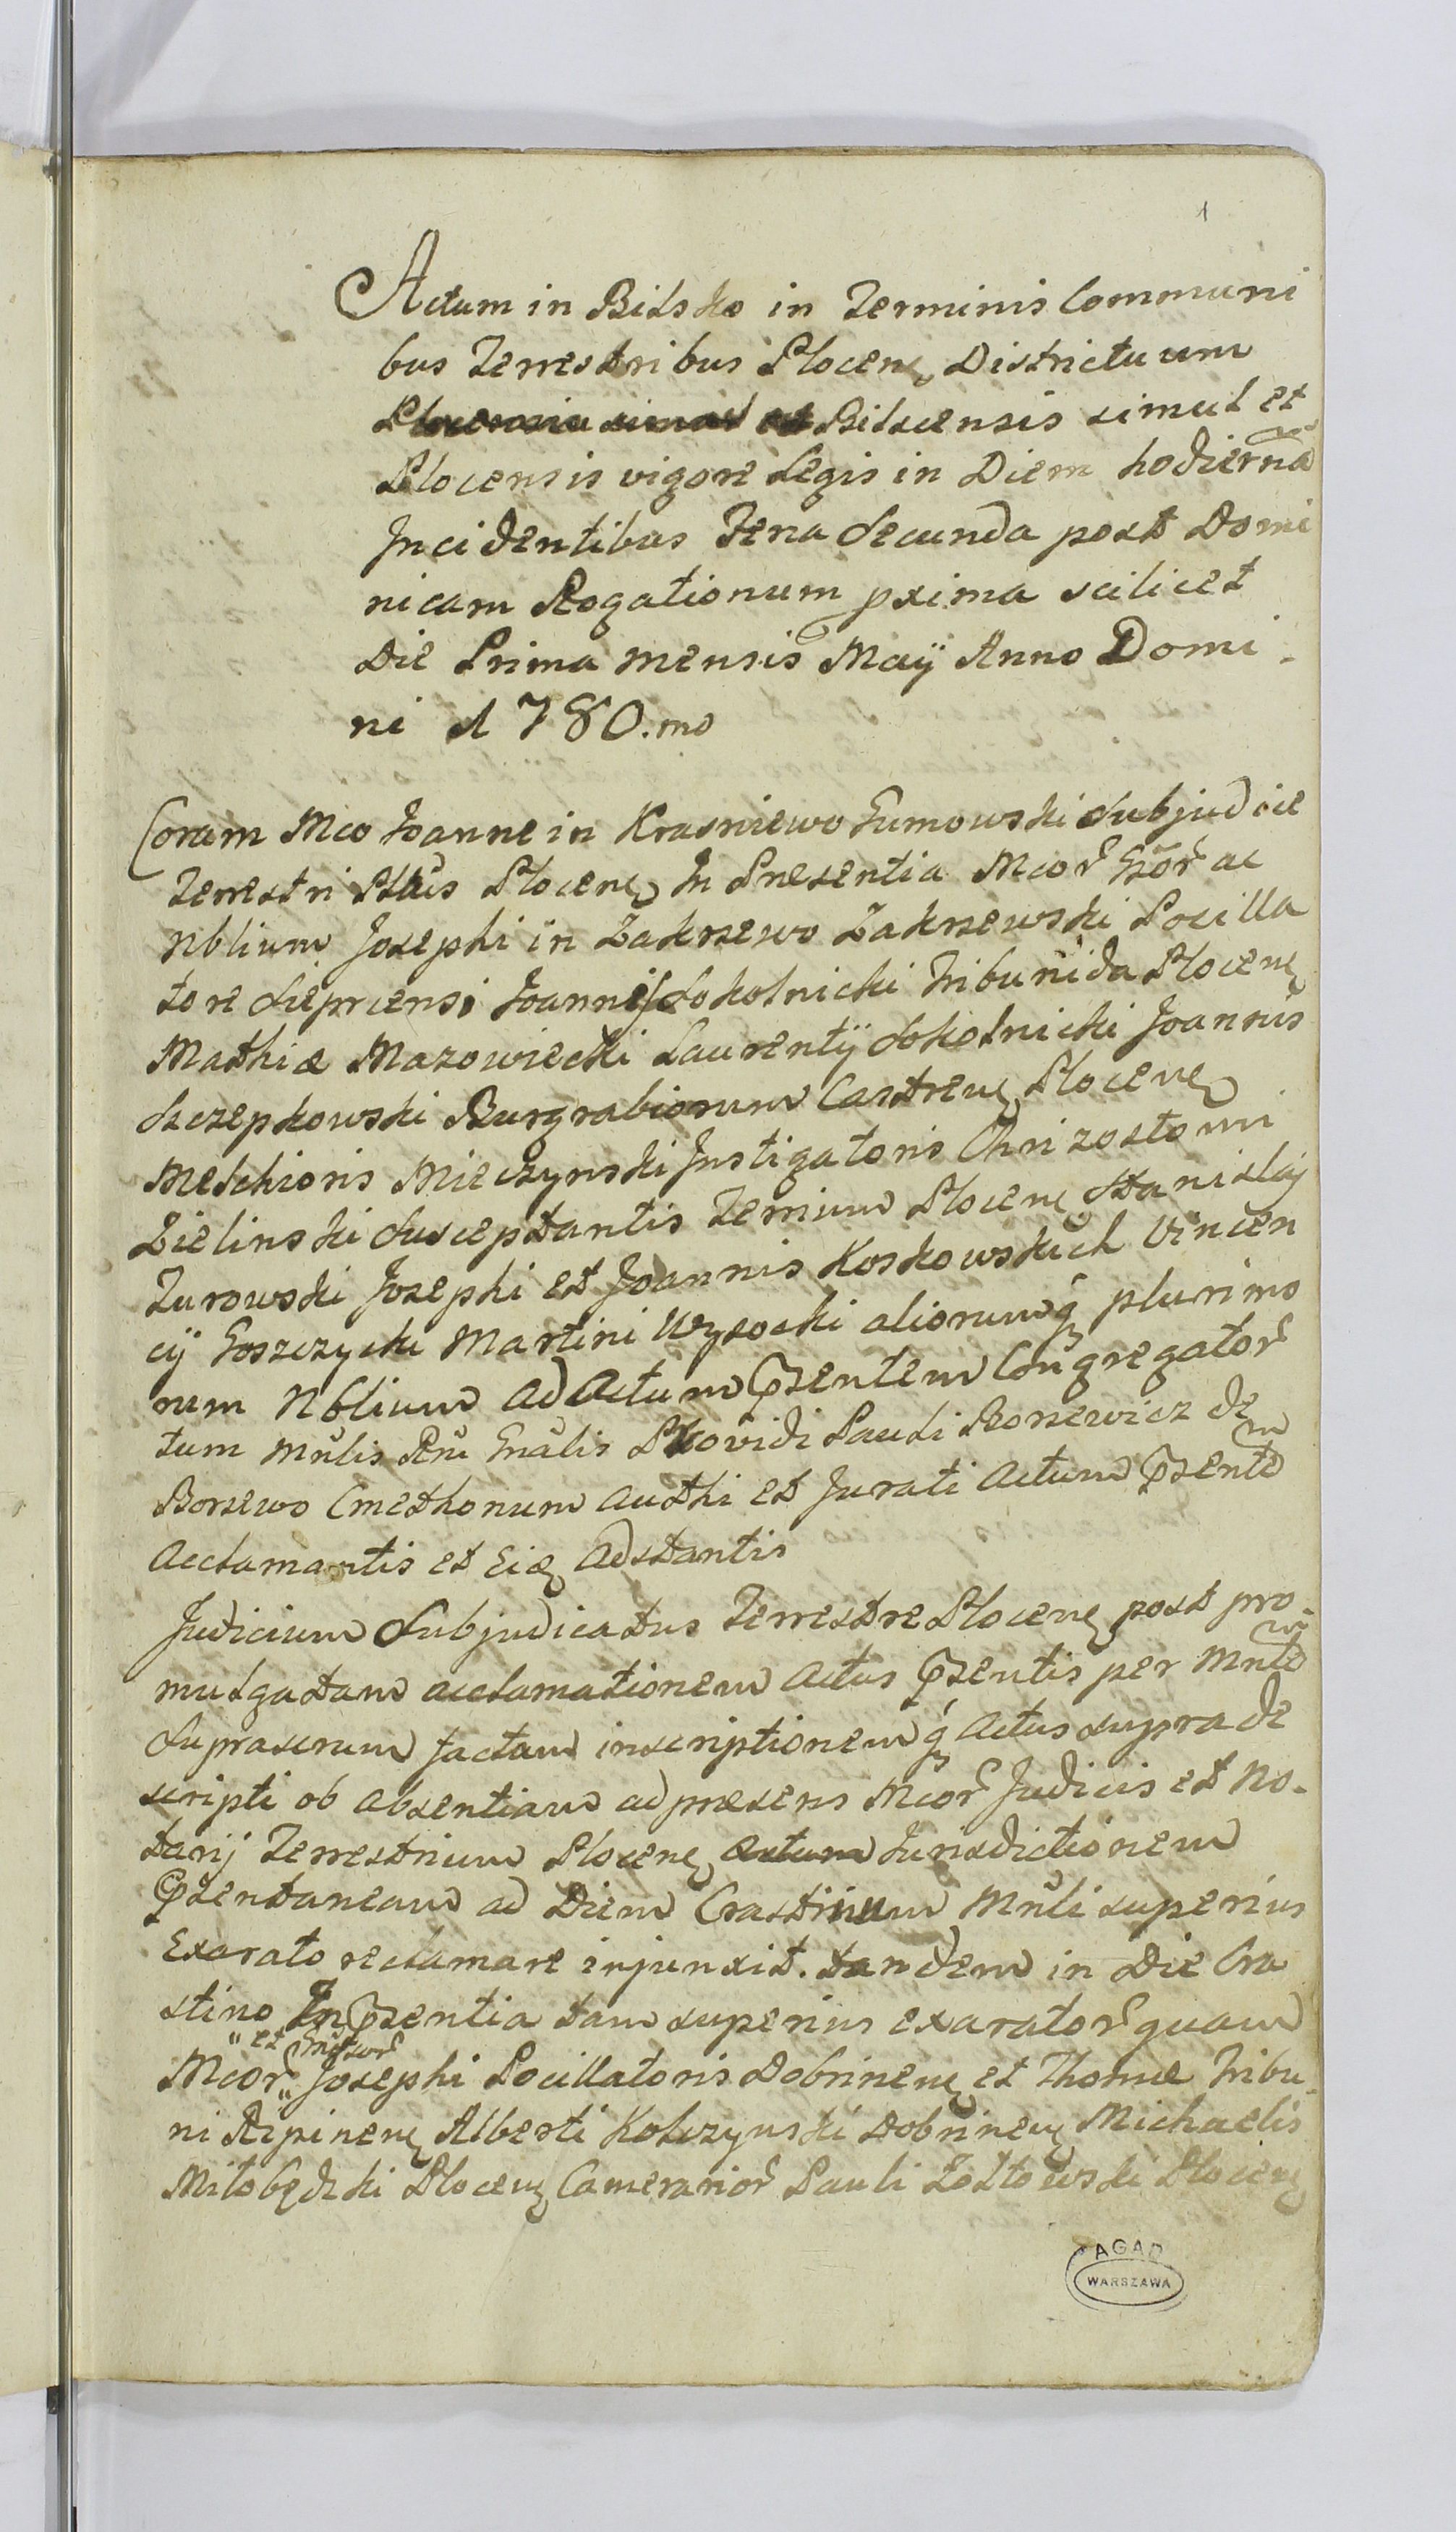 1
Actum in Bilsko in Terminis Communi
bus Terrestribus Plocen, Districtuum
Bilscensis simul et
Plocensis vigore Legis in Diem hodierna
Incidentibus Feria Secunda post Domi
nicam Rogationum pxima scilicet
Die Prima mensis Maÿ Anno Domi
ni 1780.mo
Coram Mco Joanne in Krasniewo Gumowski Subjudice
Terrestri Plocen, In Presentia Mcor Gsor ac
Nblium Josephi in Zakrzewo Zakrzewski Pocilla
tore Sieprcensi Joannis Sokolnicki Tribunida Plocen,
Mathiæ Mazowiecki Laurentÿ Sokolnicki Joannis
Szczepkowski Burgrabiorum Castren, Plocen,
Melchioris Mieczynski Instigatoris Chrizostomi
Zielinski Susceptantis Terrium Plocen, Stanislaj
Zurowski Josephi et Joannis Koskowskich Vincen
cij Goszczycki Martini Wysocki aliorumq plurimo
rum Nblium ad Actum Psentem Congregator
tum Mnlis Rni Gnalis Providi Pauli Borzewicz de
Borzewo Cmethonum Authi et Jurati Actum Psente
Acclamantis et Eiq Adstantis
Judicium Subjudicatus Terrestre Plocen, post pro
mulgatam acclamationem Actus Psentis per Mnle
Suprascrum factam inscriptionemq Actus supra de
scripti ob absentiam ad presens Mcor Judicis et No-
tarij Terrestrium Plocen, Jurisdictionem
Psentaneam ad Diem Crastinum Mnli superius
Exarato reclamare injunxit. tandem in Die Cra
stino In Psentia tam superius exarator quam
" et
Mcor " Josephi Pocillatoris Dobrinen, et Thomæ Tribu
ni Ripinen, Alberti Kolczynski Dobrinen, Michaelis
Miłobędzki Plocen, Camerarior Pauli Zołtowski Plocen,
AGAD
WARSZAWA